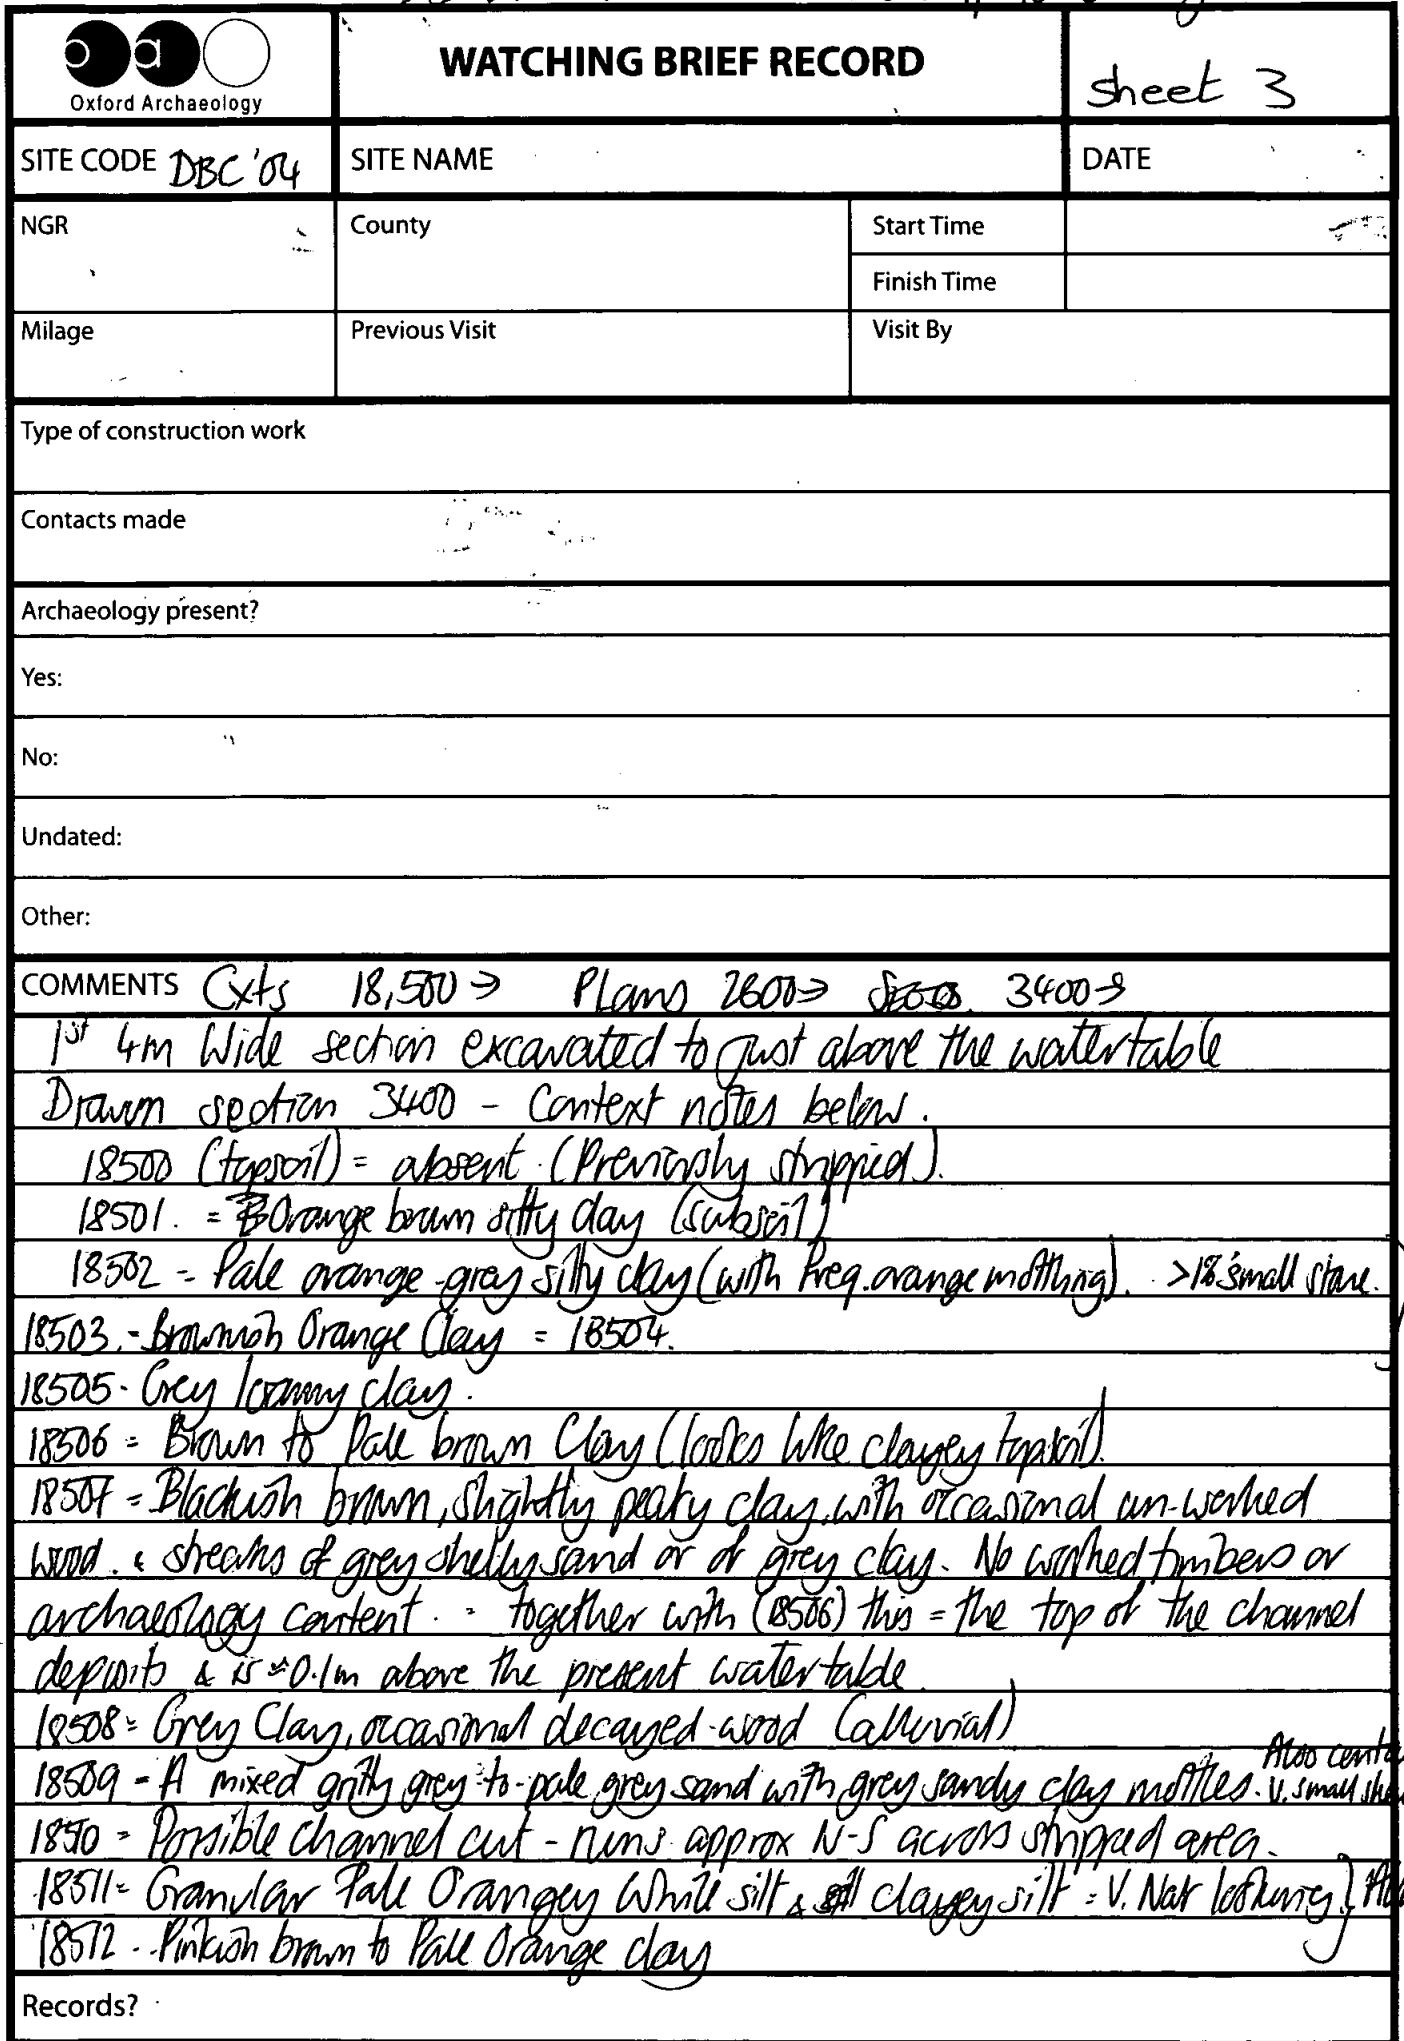 oao
Oxford Archaeology
WATCHING BRIEF RECORD
sheet 3
SITE CODE DBC '04
SITE NAME
DATE
NGR
County
Start Time
Finish Time
Milage
Previous Visit
Visit By
Type of construction work
Contacts made
Archaeology present?
Yes:
No:
Undated:
Other:
COMMENTS Cxts 18,500 → Plans 2600 → 3400 →
1st 4m Wide section excavated to just above the watertable
Drawn section 3400 - Context notes below.
18500 (topsoil) = absent. (Previously stripped).
18501. = Orange brown silty clay (subsoil)
18502 - Pale orange-grey silty clay (with freq. orange mottling). >1% small stone.
18503. - Brownish Orange Clay = 18504.
18505 - Grey loamy clay.
18506 = Brown to Pale brown Clay (looks like clayey topsoil).
18507 = Blackish brown, slightly peaty clay, with occasional un-worked
wood. & streaks of grey shelly sand or of grey clay. No worked timbers or
archaeology content. - together with (18506) this = the top of the channel
deposits & is ≈ 0.1m above the present watertable.
18508 = Grey Clay, occasional decayed-wood (alluvial)
18509 - A mixed gritty grey-to-pale grey sand with grey sandy clay mottles. Also
V. small
18510 = Possible channel cut - runs approx N-S across stripped area.
18511 = Granular Pale Orangey White silt & clayey silt = V. Nat looking }
18512 - Pinkish brown to Pale Orange clay
Records?